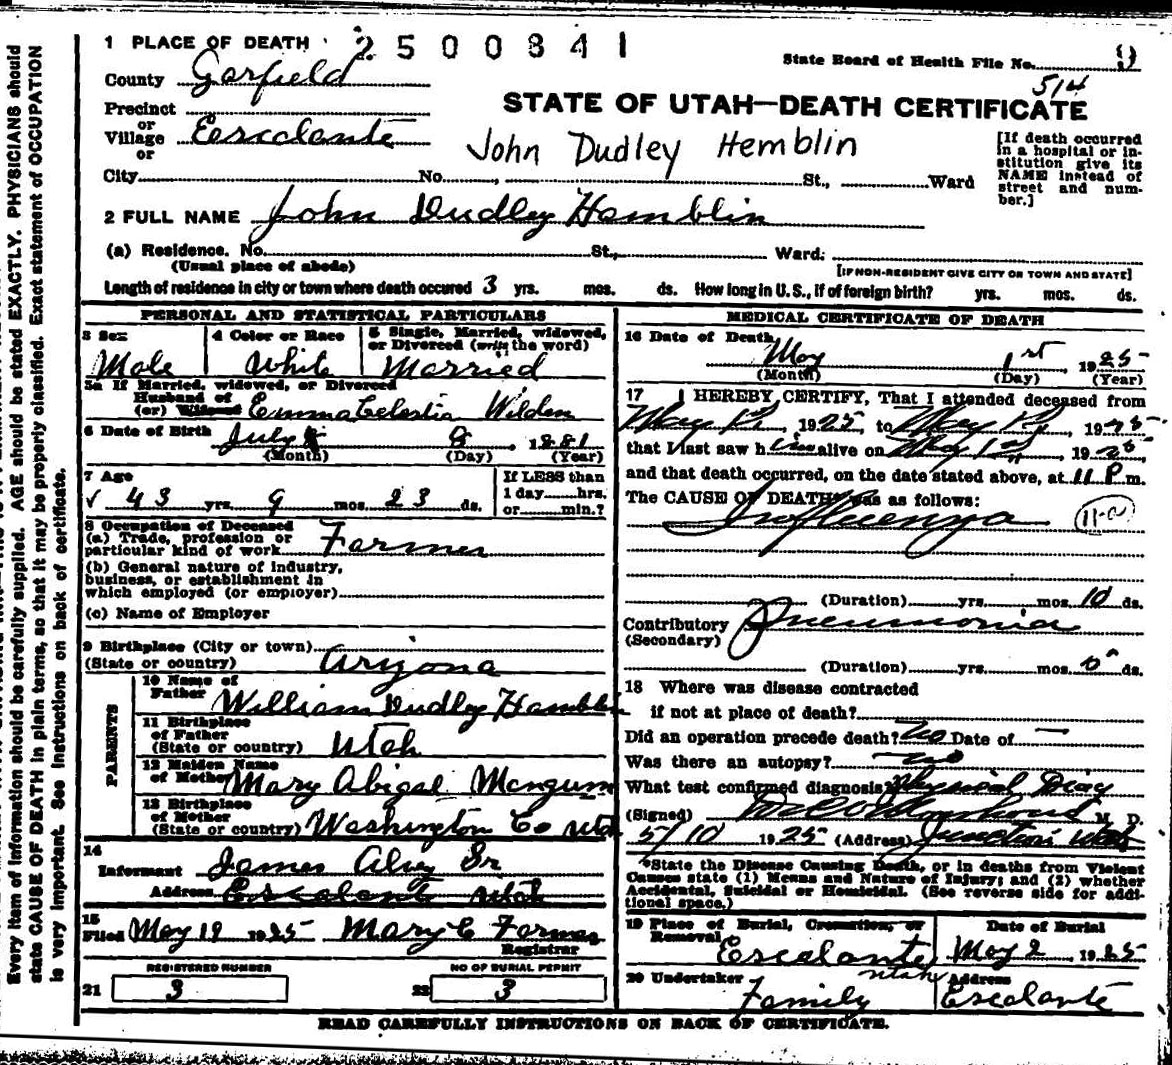 Every item of information should be carefully supplied. AGE should be stated EXACTLY. PHYSICIANS should
state CAUSE OF DEATH in plain terms, so that it may be properly classified. Exact statement of OCCUPATION
is very important. See instructions on back of certificate.
1 PLACE OF DEATH
2500841
State Board of Health File No. 9
514
County Garfield
Precinct
or
Village Eescalante
or
STATE OF UTAH—DEATH CERTIFICATE
John Dudley Hemblin
[If death occurred
in a hospital or in-
stitution give its
NAME instead of
street and num-
ber.]
City No. , St., Ward
2 FULL NAME John Dudley Hamblin
(a) Residence. No. St., Ward.
(Usual place of abode) [IF NON-RESIDENT GIVE CITY OR TOWN AND STATE]
Length of residence in city or town where death occured 3 yrs. mos. ds. How long in U. S., if of foreign birth? yrs. mos. ds.
PERSONAL AND STATISTICAL PARTICULARS
3 Sex
Male
4 Color or Race
White
5 Single, Married, widowed,
or Divorced (write the word)
Married
5a If Married, widowed, or Divorced
Husband of
(or) Widow of Emma Celestia Wilden
6 Date of Birth July 8, 1881
(Month) (Day) (Year)
7 Age
43 yrs. 9 mos. 23 ds.
If LESS than
1 day hrs.
or min.?
8 Occupation of Deceased
(a) Trade, profession or
particular kind of work Farmer
(b) General nature of industry,
business, or establishment in
which employed (or employer)
(c) Name of Employer
9 Birthplace (City or town)
(State or country) Arizona
PARENTS
10 Name of
Father William Dudley Hamblin
11 Birthplace
of Father
(State or country) Utah
12 Maiden Name
of Mother Mary Abigal Mangum
13 Birthplace
of Mother
(State or country) Washington Co Utah
14
Informant James Alvey Sr
Address Escalante Utah
15
Filed May 19 1925 Mary E Forman
Registrar
REGISTERED NUMBER
21 3
NO OF BURIAL PERMIT
22 3
MEDICAL CERTIFICATE OF DEATH
16 Date of Death
May 1st, 1925
(Month) (Day) (Year)
17 I HEREBY CERTIFY, That I attended deceased from
May 1, 1925, to May 1, 1925,
that I last saw him alive on May 1st, 1925,
and that death occurred, on the date stated above, at 11 P.m.
The CAUSE OF DEATH* was as follows:
Influenza 11-a
(Duration) yrs. mos. 10 ds.
Contributory Pneumonia
(Secondary)
(Duration) yrs. mos. ds.
18 Where was disease contracted
if not at place of death?
Did an operation precede death? No Date of —
Was there an autopsy? no
What test confirmed diagnosis? Physical Diag
(Signed) M. D.
5/10 1925 (Address) Junction Utah
*State the Disease Causing Death, or in deaths from Violent
Causes state (1) Means and Nature of Injury; and (2) whether
Accidental, Suicidal or Homicidal. (See reverse side for addi-
tional space.)
19 Place of Burial, Cremation, or
Removal
Escalante Utah
Date of Burial
May 2, 1925
20 Undertaker
Family
Address
Escalante
READ CAREFULLY INSTRUCTIONS ON BACK OF CERTIFICATE.